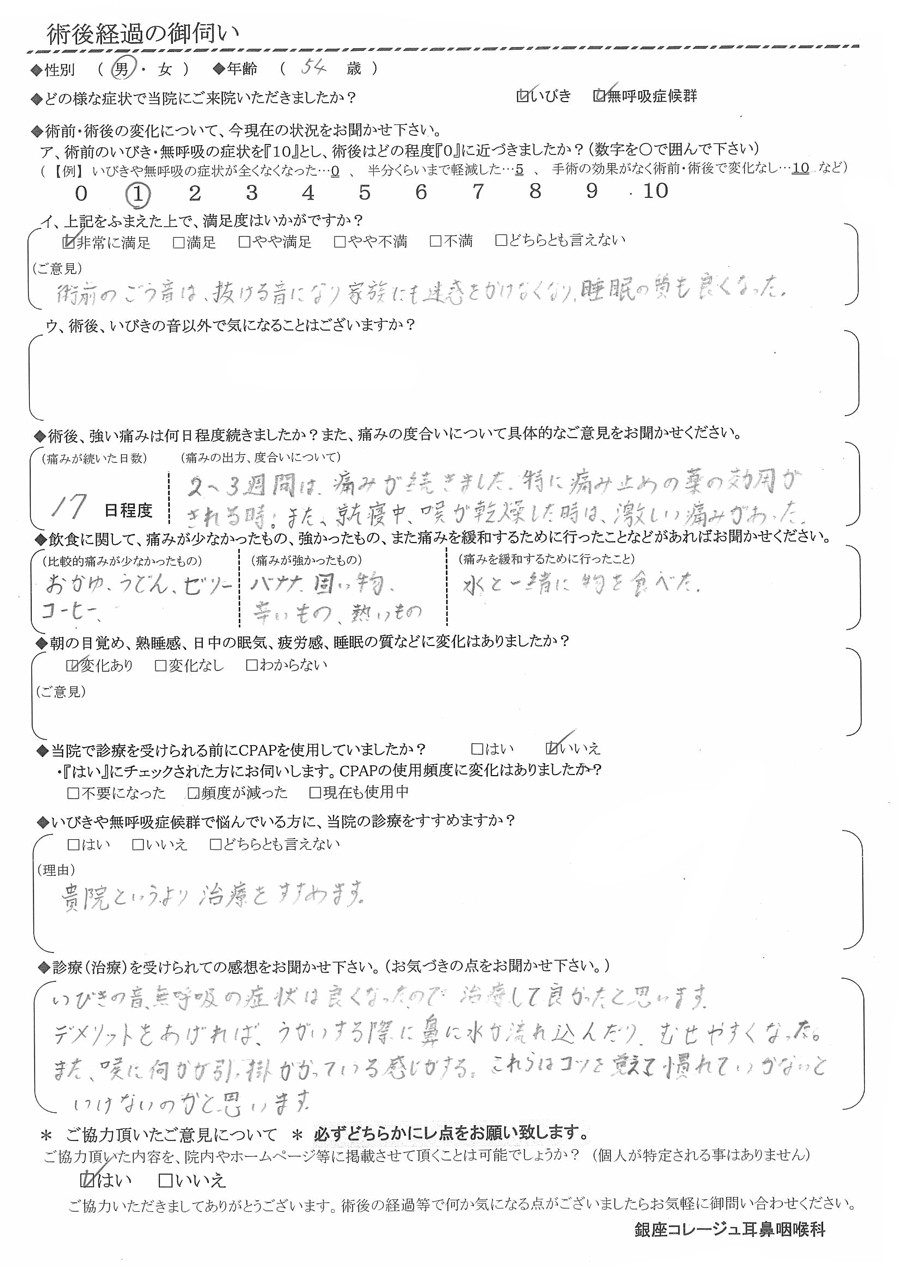 術後経過の御伺い
◆性別 （ 男 ・ 女 ） ◆年齢 （ 54 歳 ）
◆どの様な症状で当院にご来院いただきましたか？ ☑いびき ☑無呼吸症候群
◆術前・術後の変化について、今現在の状況をお聞かせ下さい。
ア、術前のいびき・無呼吸の症状を『10』とし、術後はどの程度『0』に近づきましたか？（数字を○で囲んで下さい）
（【例】 いびきや無呼吸の症状が全くなくなった…0 、 半分くらいまで軽減した…5 、 手術の効果がなく術前・術後で変化なし…10 など）
0 1 2 3 4 5 6 7 8 9 10
イ、上記をふまえた上で、満足度はいかがですか？
☑非常に満足 □満足 □やや満足 □やや不満 □不満 □どちらとも言えない
（ご意見）
術前のごう音は、抜ける音になり家族にも迷惑をかけなくなり、睡眠の質も良くなった。
ウ、術後、いびきの音以外で気になることはございますか？
◆術後、強い痛みは何日程度続きましたか？また、痛みの度合いについて具体的なご意見をお聞かせください。
（痛みが続いた日数） （痛みの出方、度合いについて）
2～3週間は、痛みが続きました。特に痛み止めの薬の効用が
17 日程度
される時。また、就寝中、喉が乾燥した時は、激しい痛みがあった。
◆飲食に関して、痛みが少なかったもの、強かったもの、また痛みを緩和するために行ったことなどがあればお聞かせください。
（比較的痛みが少なかったもの） （痛みが強かったもの） （痛みを緩和するために行ったこと）
おかゆ、うどん、ゼリー バナナ、固い物、 水と一緒に物を食べた。
コーヒー、 辛いもの、熱いもの
◆朝の目覚め、熟睡感、日中の眠気、疲労感、睡眠の質などに変化はありましたか？
☑変化あり □変化なし □わからない
（ご意見）
◆当院で診療を受けられる前にCPAPを使用していましたか？ □はい ☑いいえ
・『はい』にチェックされた方にお伺いします。CPAPの使用頻度に変化はありましたか？
□不要になった □頻度が減った □現在も使用中
◆いびきや無呼吸症候群で悩んでいる方に、当院の診療をすすめますか？
□はい □いいえ □どちらとも言えない
（理由）
貴院というより治療をすすめます。
◆診療（治療）を受けられての感想をお聞かせ下さい。（お気づきの点をお聞かせ下さい。）
いびきの音、無呼吸の症状は良くなったので治療して良かったと思います。
デメリットをあげれば、うがいする際に鼻に水が流れ込んだり、むせやすくなった。
また、喉に何かが引っ掛かがっている感じがする。これらはコツを覚えて慣れていかないと
いけないのかと思います。
＊ ご協力頂いたご意見について ＊ 必ずどちらかにレ点をお願い致します。
ご協力頂いた内容を、院内やホームページ等に掲載させて頂くことは可能でしょうか？ （個人が特定される事はありません）
☑はい □いいえ
ご協力いただきましてありがとうございます。術後の経過等で何か気になる点がございましたらお気軽に御問い合わせください。
銀座コレージュ耳鼻咽喉科